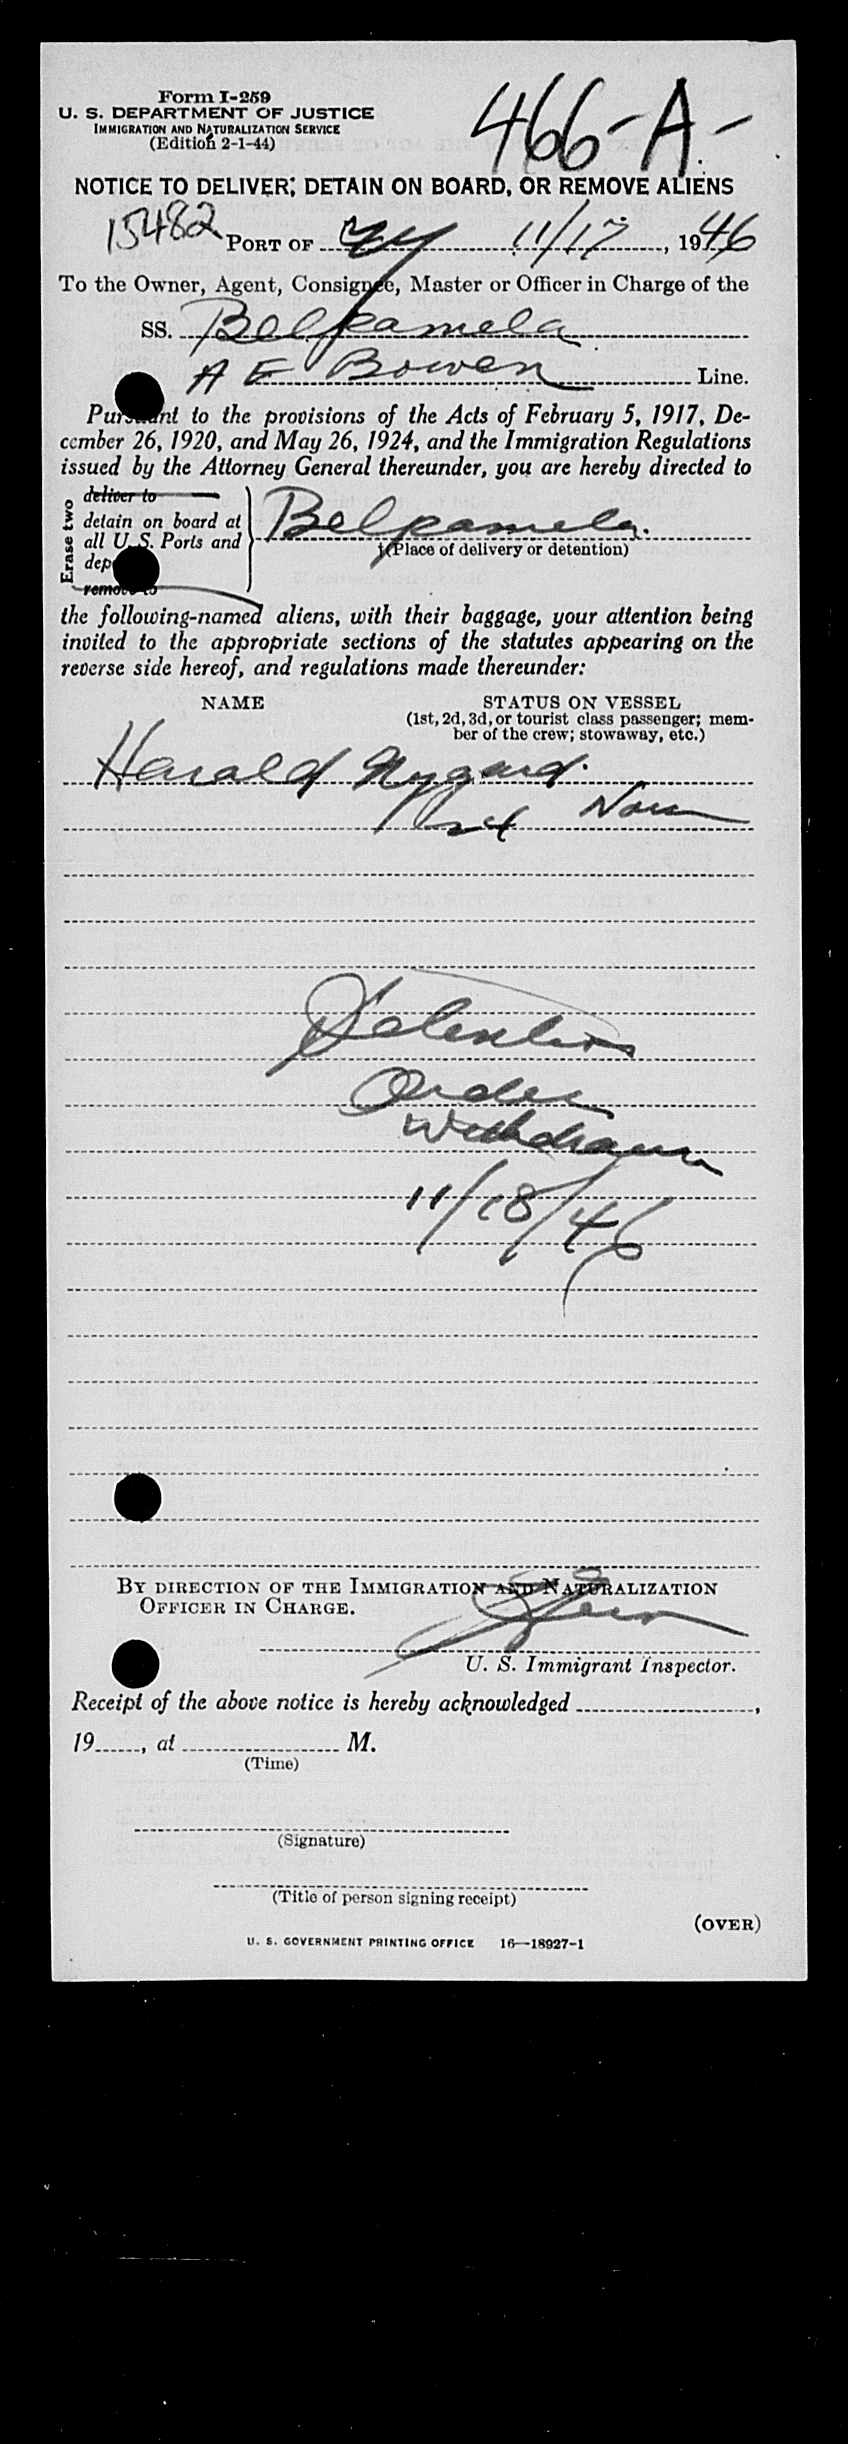 Form I-259
U. S. DEPARTMENT OF JUSTICE
IMMIGRATION AND NATURALIZATION SERVICE
(Edition 2-1-44)
466-A-
NOTICE TO DELIVER, DETAIN ON BOARD, OR REMOVE ALIENS
15482 PORT OF NY 11/17, 1946
To the Owner, Agent, Consignee, Master or Officer in Charge of the
SS. Belpamela
A E Bowen Line.
Pursuant to the provisions of the Acts of February 5, 1917, De-
cember 26, 1920, and May 26, 1924, and the Immigration Regulations
issued by the Attorney General thereunder, you are hereby directed to
Erase two
deliver to
detain on board at
all U. S. Ports and
remove to
Belpamela.
(Place of delivery or detention)
the following-named aliens, with their baggage, your attention being
invited to the appropriate sections of the statutes appearing on the
reverse side hereof, and regulations made thereunder:
NAME STATUS ON VESSEL
(1st, 2d, 3d, or tourist class passenger; mem-
ber of the crew; stowaway, etc.)
Harald Nygard
Detention
Order
Withdrawn
11/18/46
BY DIRECTION OF THE IMMIGRATION AND NATURALIZATION
OFFICER IN CHARGE.
U. S. Immigrant Inspector.
Receipt of the above notice is hereby acknowledged ,
19 , at M.
(Time)
(Signature)
(Title of person signing receipt)
(OVER)
U. S. GOVERNMENT PRINTING OFFICE 16—18927-1